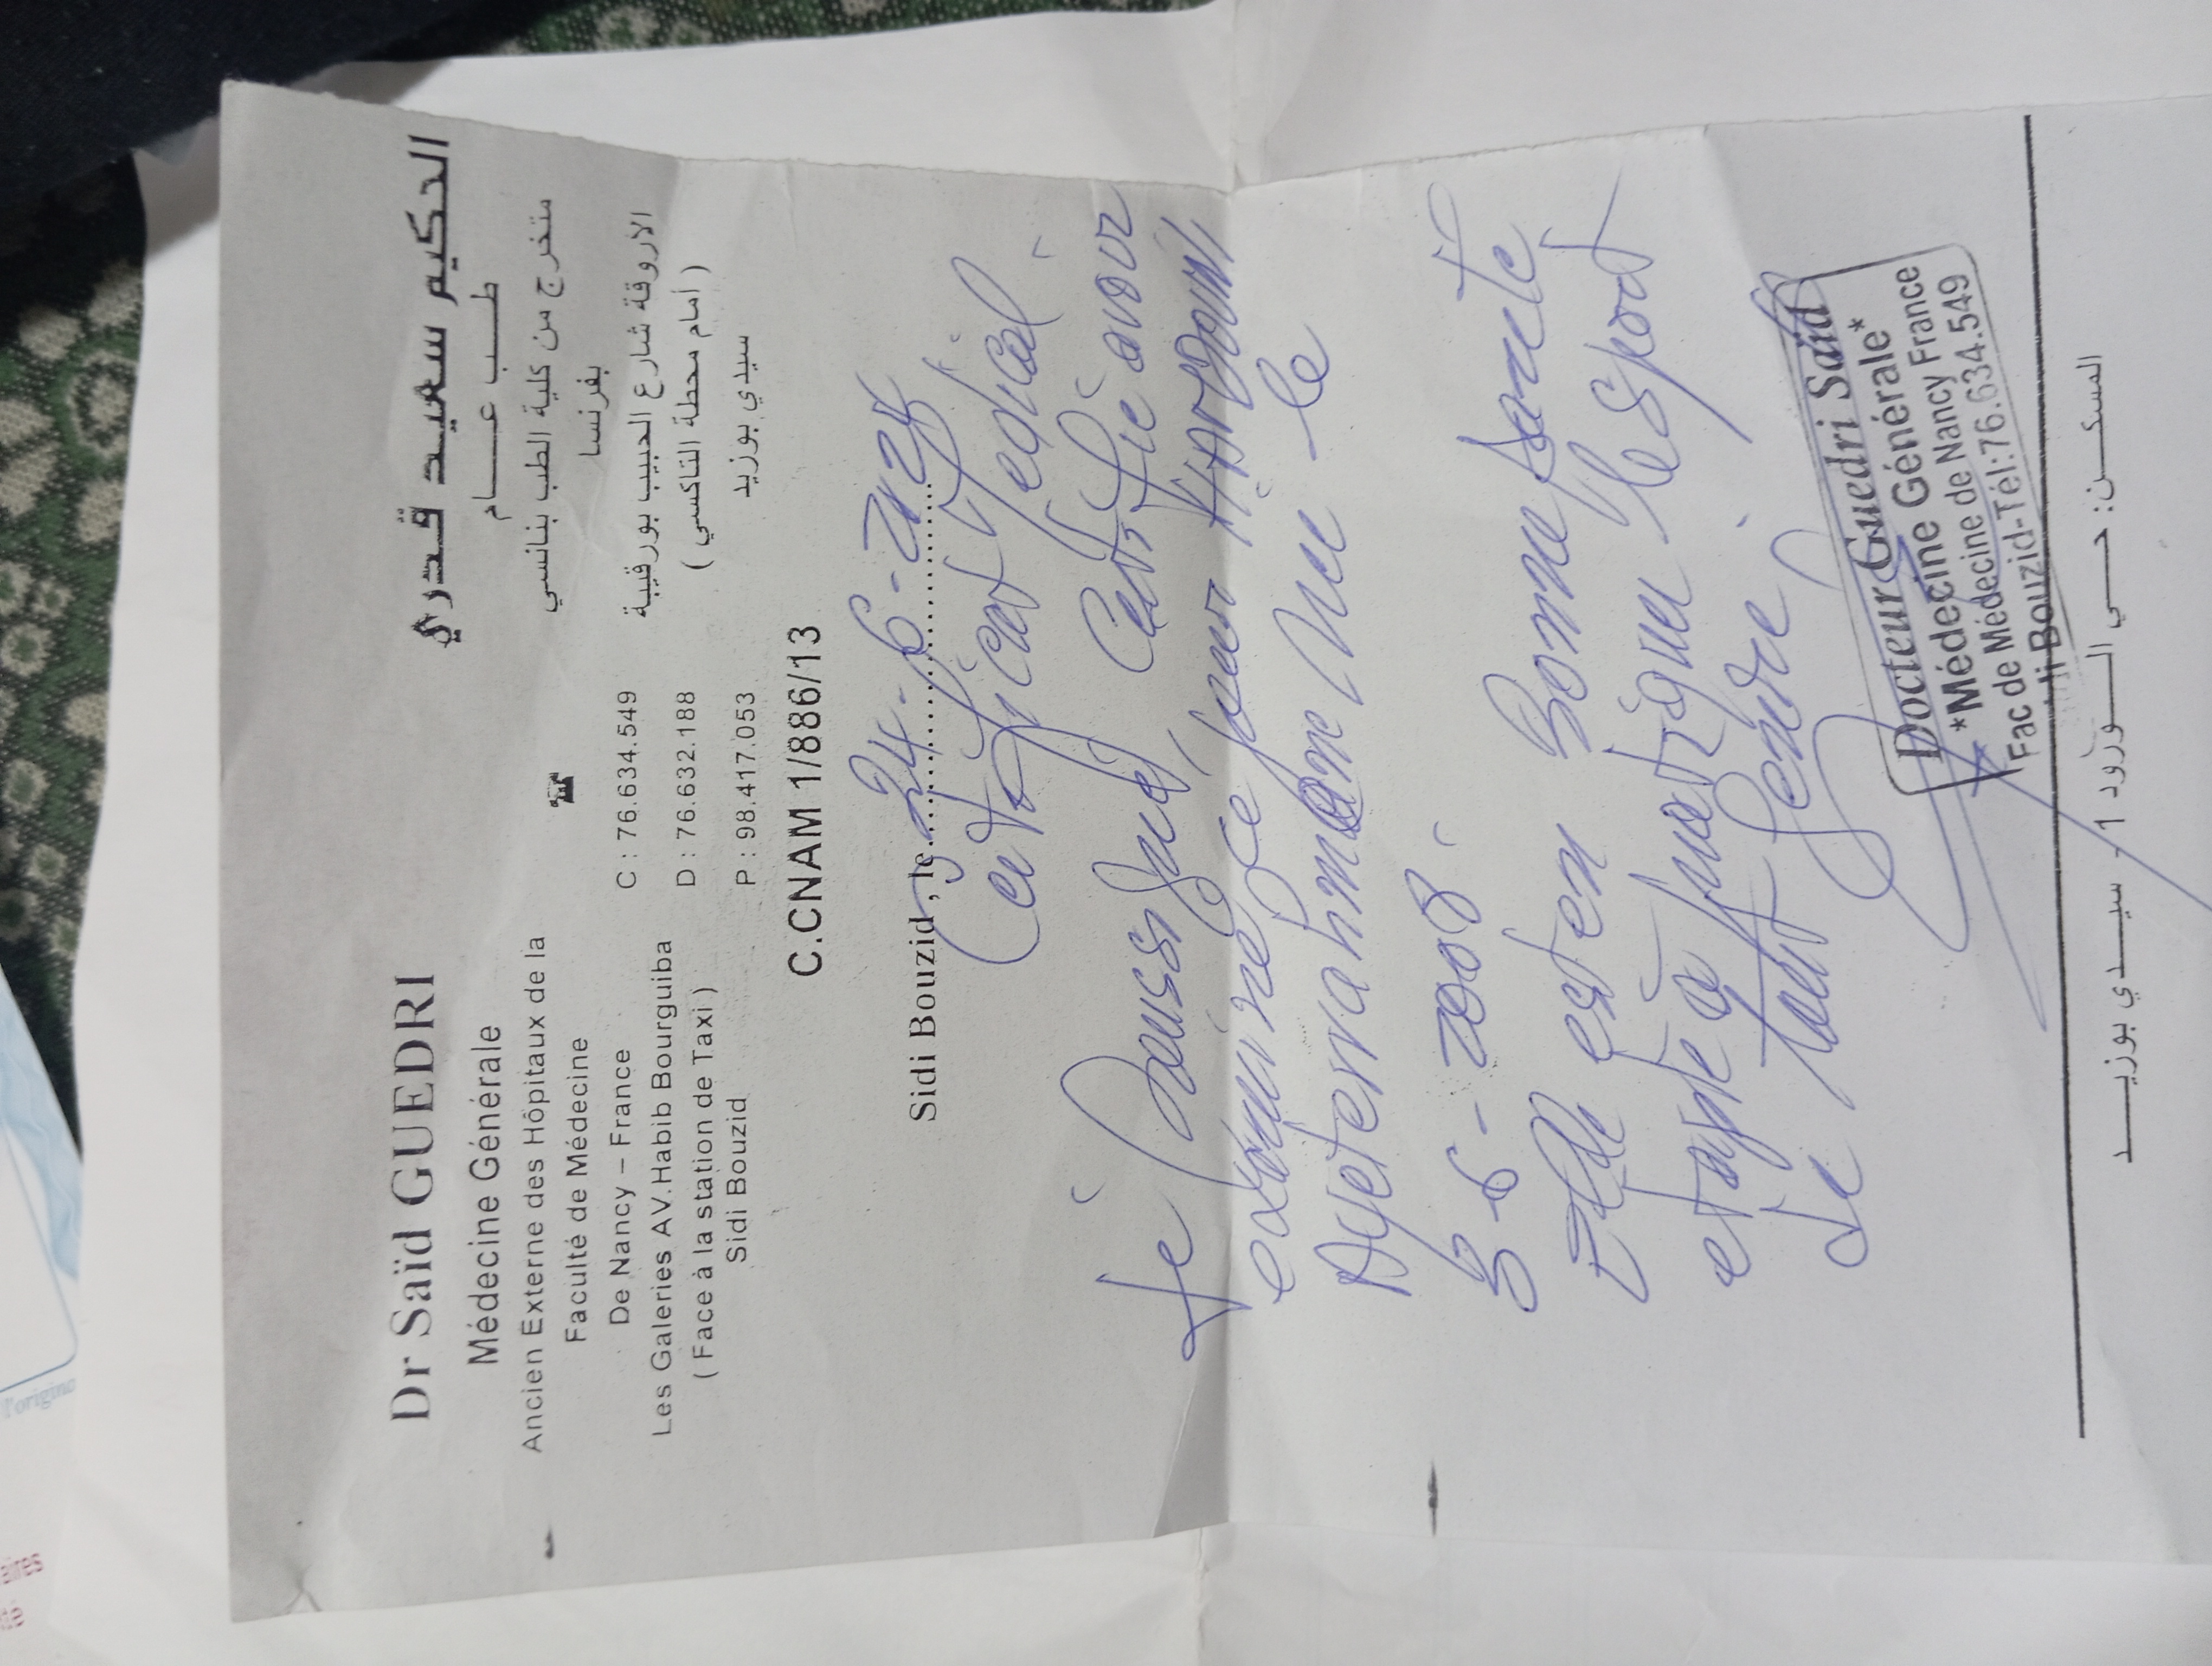 Dr Saïd GUEDRI
Médecine Générale
Ancien Externe des Hôpitaux de la
Faculté de Médecine
De Nancy – France
Les Galeries AV.Habib Bourguiba
( Face à la station de Taxi )
Sidi Bouzid
C : 76.634.549
D : 76.632.188
P : 98.417.053
الحكيم سعيد قدري
طب عام
متخرج من كلية الطب بنانسي
بفرنسا
الأروقة شارع الحبيب بورقيبة
( أمام محطة التاكسي )
سيدي بوزيد
C.CNAM 1/886/13
Sidi Bouzid, le 24-6-
Certificat Medical
Je Certifie avoir
examiné ce jour
Ayet errahmane Née le
5-6-2008.
Elle est en Bonne Santé
et apte à pratiquer le sport
de tout Genre
Docteur Guedri Saïd
*Médecine Générale*
Fac de Médecine de Nancy France
di Bouzid-Tél:76.634.549
المسكن: حي الورود 1 - سيدي بوزيد
l'origine
aires
té